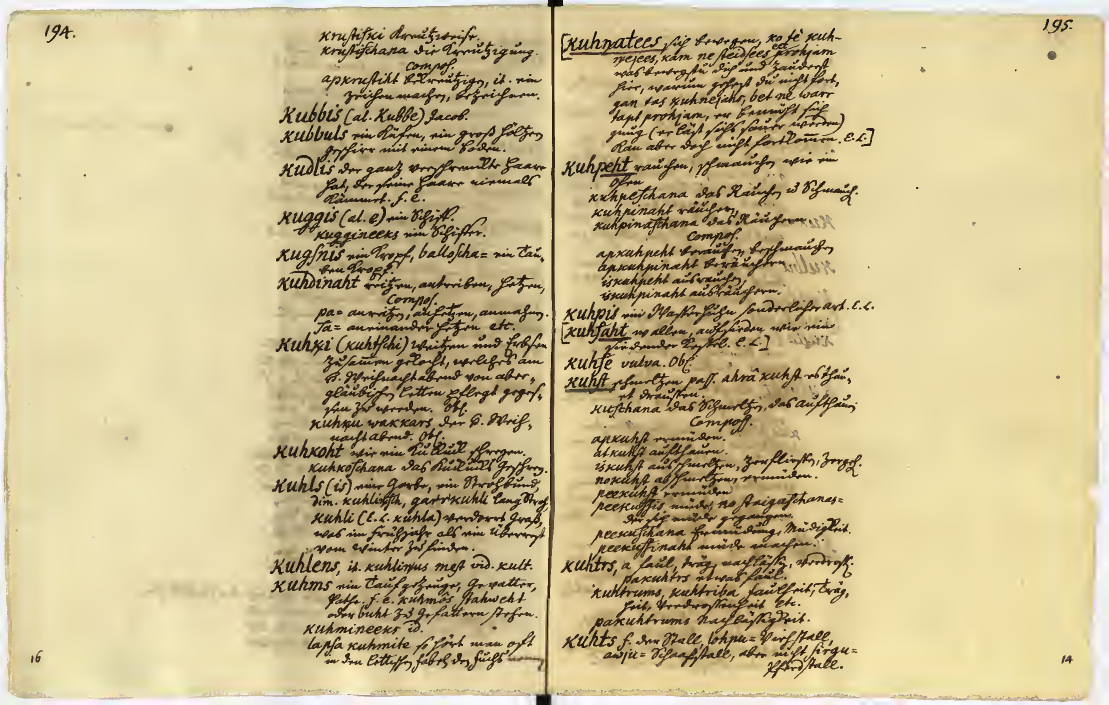 194.
krustiski Kreutzweise.
krustischana die Kreutzigung.
Compos.
apkrustiht bekreutzigen, it. ein
Zeichen machen, bezeichnen.
Kubbis (al. Kubbe) Jacob.
Kubbuls ein Küfen, ein groß höltzen
geschirr mit einem Boden.
Kudlis der ganz verschremte Haare
hat, der seine Haare niemals
kämmet. S. E.
Kuggis (al. e) ein Schiff.
Kuggineeks ein Schiffer.
Kugsnis ein Kropf, balloscha= ein Tau-
ben Kropf.
Kuhdinaht reitzen, antreiben, hetzen,
Compos.
pa= anreitzen, anhetzen, anmahnen.
Sa= aneinander hetzen etc.
Kuhki (kuhtschi) weitzen und Erbsen
zusamen gekocht, welches am
H. Weihnachtabend von aber-
gläubischen Letten pflegt geges-
sen zu werden. Obs.
kuhku wakkars der H. Weih-
nachtabend. Obs.
Kuhkoht wie ein Kukuk schreyen.
kuhkoschana das Kukuks Geschrey.
Kuhls (is) eine Garbe, ein Strohbund,
dim. kuhlihtsch, garrkuhli lang Stroh,
Kuhli (E. L. kuhla) verdorrt Graß,
was im Frühjahr als ein Überrest
vom Winter zu finden.
Kuhlens, it. kuhlinus mest vid. kult.
Kuhms ein Taufgezeuge, Gevatter,
Pathe. f. e. kuhmôs stahweht
oder buht zu Gefattern stehen.
kuhmineeks id.
lapsa kuhmite so hört man oft
in den Lettischen fabeln den fuchs
16
195.
[Kuhnatees sich bewegen, ko tê kuh-
nejees, kam ne steidsees prohjam
was bewegstu dich und zauderst
hier, warum gehest du nicht fort,
gan tas kuhnejahs, bet ne warr
tapt prohjam, er bemüht sich
gnug (er läst sichs sauer werden)
kan aber doch nicht fortkomen. E. L.]
Kuhpeht rauchen, schmauchen wie ein
Ofen
kuhpeschana das Rauchen u Schmauch.
kuhpinaht räuchern,
kuhpinaschana das Räuchern
Compos.
apkuhpeht berauchen, beschmauchen
apkuhpinaht beräuchern
iskuhpeht ausrauchen,
iskuhpinaht ausräuchern.
Kuhpis ein Wasserhuhn sonderlicher art. E. L.
[Kuhsaht wallen, aufsieden wie ein
siedender Kessel. E. L.]
Kuhse vulva. Obs.
Kuhst schmeltzen pass. ahrâ kuhst es thau-
et draussen.
kuschana das Schmeltzen, das aufthauen
Compos.
apkuhst ermüden.
atkuhst aufthauen.
iskuhst ausschmeltzen, zerfliessen, zergeh.
nokuhst abschmeltzen, ermüden.
peekuhst ermüden
peekussis müde, no staigaschanas=
der sich müde gegangen
peekuschana Ermüdung, Müdigkeit.
peekussinaht müde machen.
Kuhtrs, a faul, träg, nachlässig, verdross.
pakuhtrs etwas faul.
kuhtrums, kuhtriba faulheit, Träg-
heit, Verdrossenheit etc.
pakuhtrums Nachlässigkeit.
Kuhts f. den Stall, lohpu= Viehstall,
awju= Schaafstall, aber nicht sirgu=
Pferdstall.
14